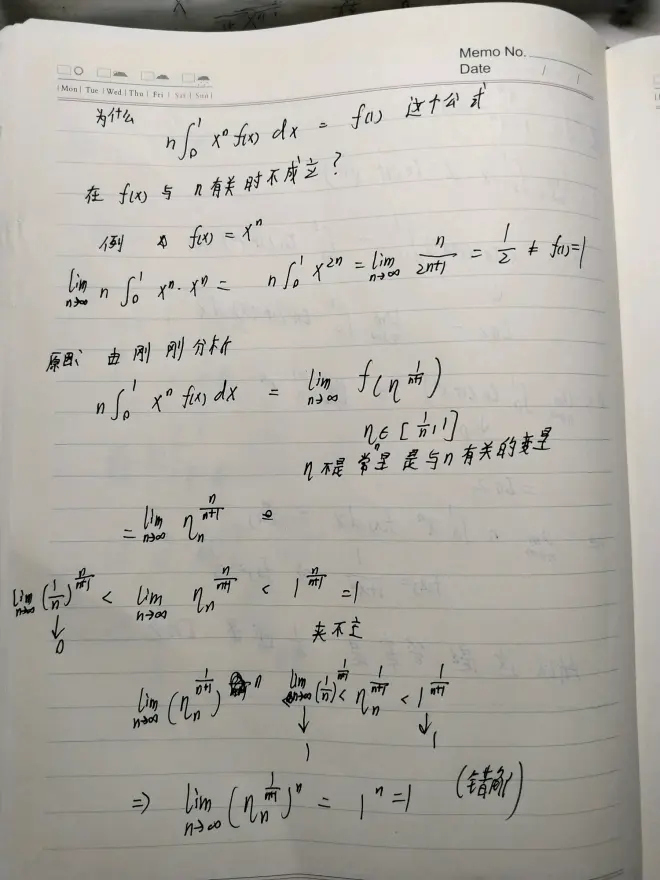 Memo No.
Date / /
Mon Tue Wed Thu Fri Sat Sun
为什么 n∫₀¹ xⁿ f(x) dx = f(1) 这个公式
在 f(x) 与 n 有关时不成立?
例 f(x) = xⁿ
lim n→∞ n∫₀¹ xⁿ·xⁿ = n∫₀¹ x²ⁿ = lim n→∞ n/(2n+1) = 1/2 ≠ f(1)=1
原因: 由刚刚分析
n∫₀¹ xⁿ f(x) dx = lim n→∞ f(η^(1/(n+1)))
ηₙ∈[1/n, 1]
η不是常量 是与n有关的变量
= lim n→∞ ηₙ^(n/(n+1))
lim n→∞ (1/n)^(n/(n+1)) < lim n→∞ ηₙ^(n/(n+1)) < 1^(n/(n+1)) = 1
↓
0
夹不定
lim n→∞ (ηₙ^(1/(n+1)))ⁿ lim n→∞ (1/n)^(1/(n+1)) < ηₙ^(1/(n+1)) < 1^(1/(n+1))
↓ ↓
1 1
⇒ lim n→∞ (ηₙ^(1/(n+1)))ⁿ = 1ⁿ = 1 (错解)